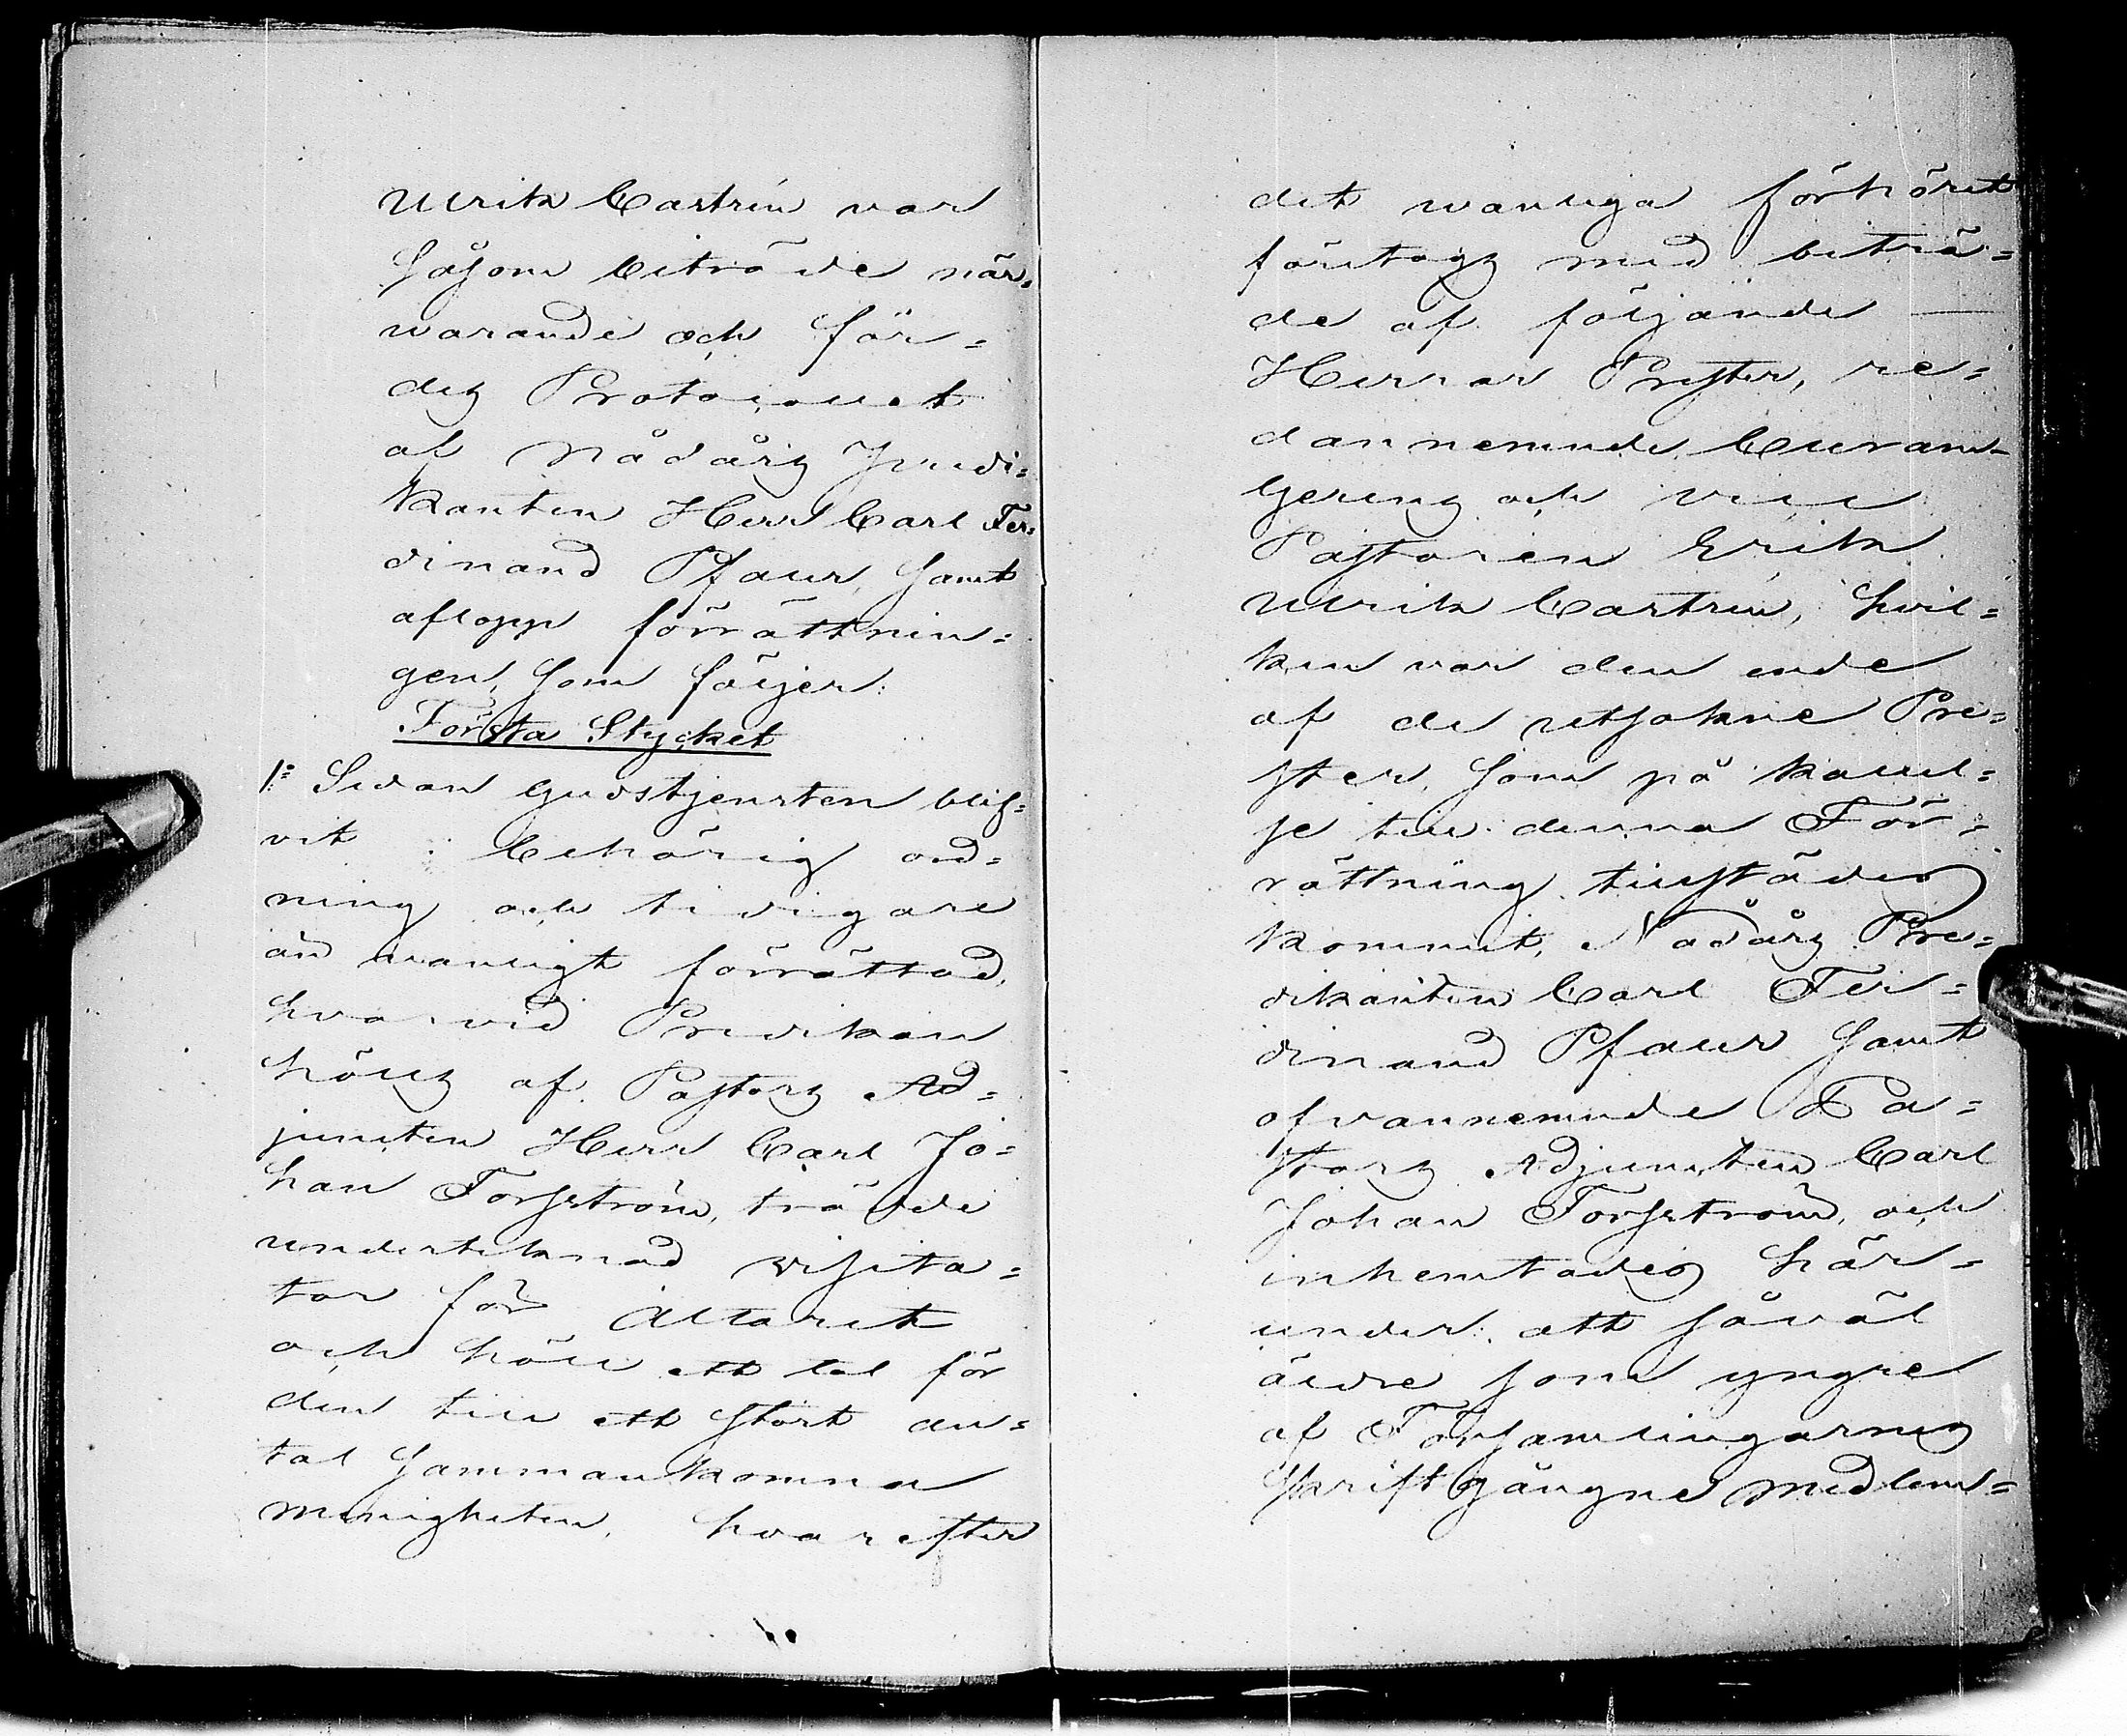 Ulrik Castrén var
såsom biträde när-
warande och för-
des Protocollet
af Nådårs Predi-
kanten Herr Carl Fer-
dinand Pfaler, samt
aflopp förrättnin-
gen, som följer:
Första Stycket
1:o Sedan Gudstjensten blif-
vit i behörig ord-
ning och tidigare
än vanligt förrättad,
hvarvid Predikan
hölls af Pastors Ad-
juncten Herr Carl Jo-
han Forsström, trädde
undertecknad visita-
tor för Altaret
och höll ett tal för
den till ett stort an-
tal sammankomna
menigheten, hvarefter
det wanliga förhöret
företogs med biträ-
de af följande
Herrar Prester, re-
dannemnde Curam-
gerens och vice
Pastoren Erik
Ulrik Castrén, hvil-
ken var den ende
af de utsokne Pre-
ster, som på kallel-
se till denna För-
rättning tillstädes
kommit, Nådårs Pre-
dikanten Carl Fer-
dinand Pfaler samt
ofvannemnde Pa-
stors Adjuncten Carl
Johan Forsström, och
inhemtades här-
under, att såväl
äldre som yngre
af Församlingarnes
skriftgångne medlem-